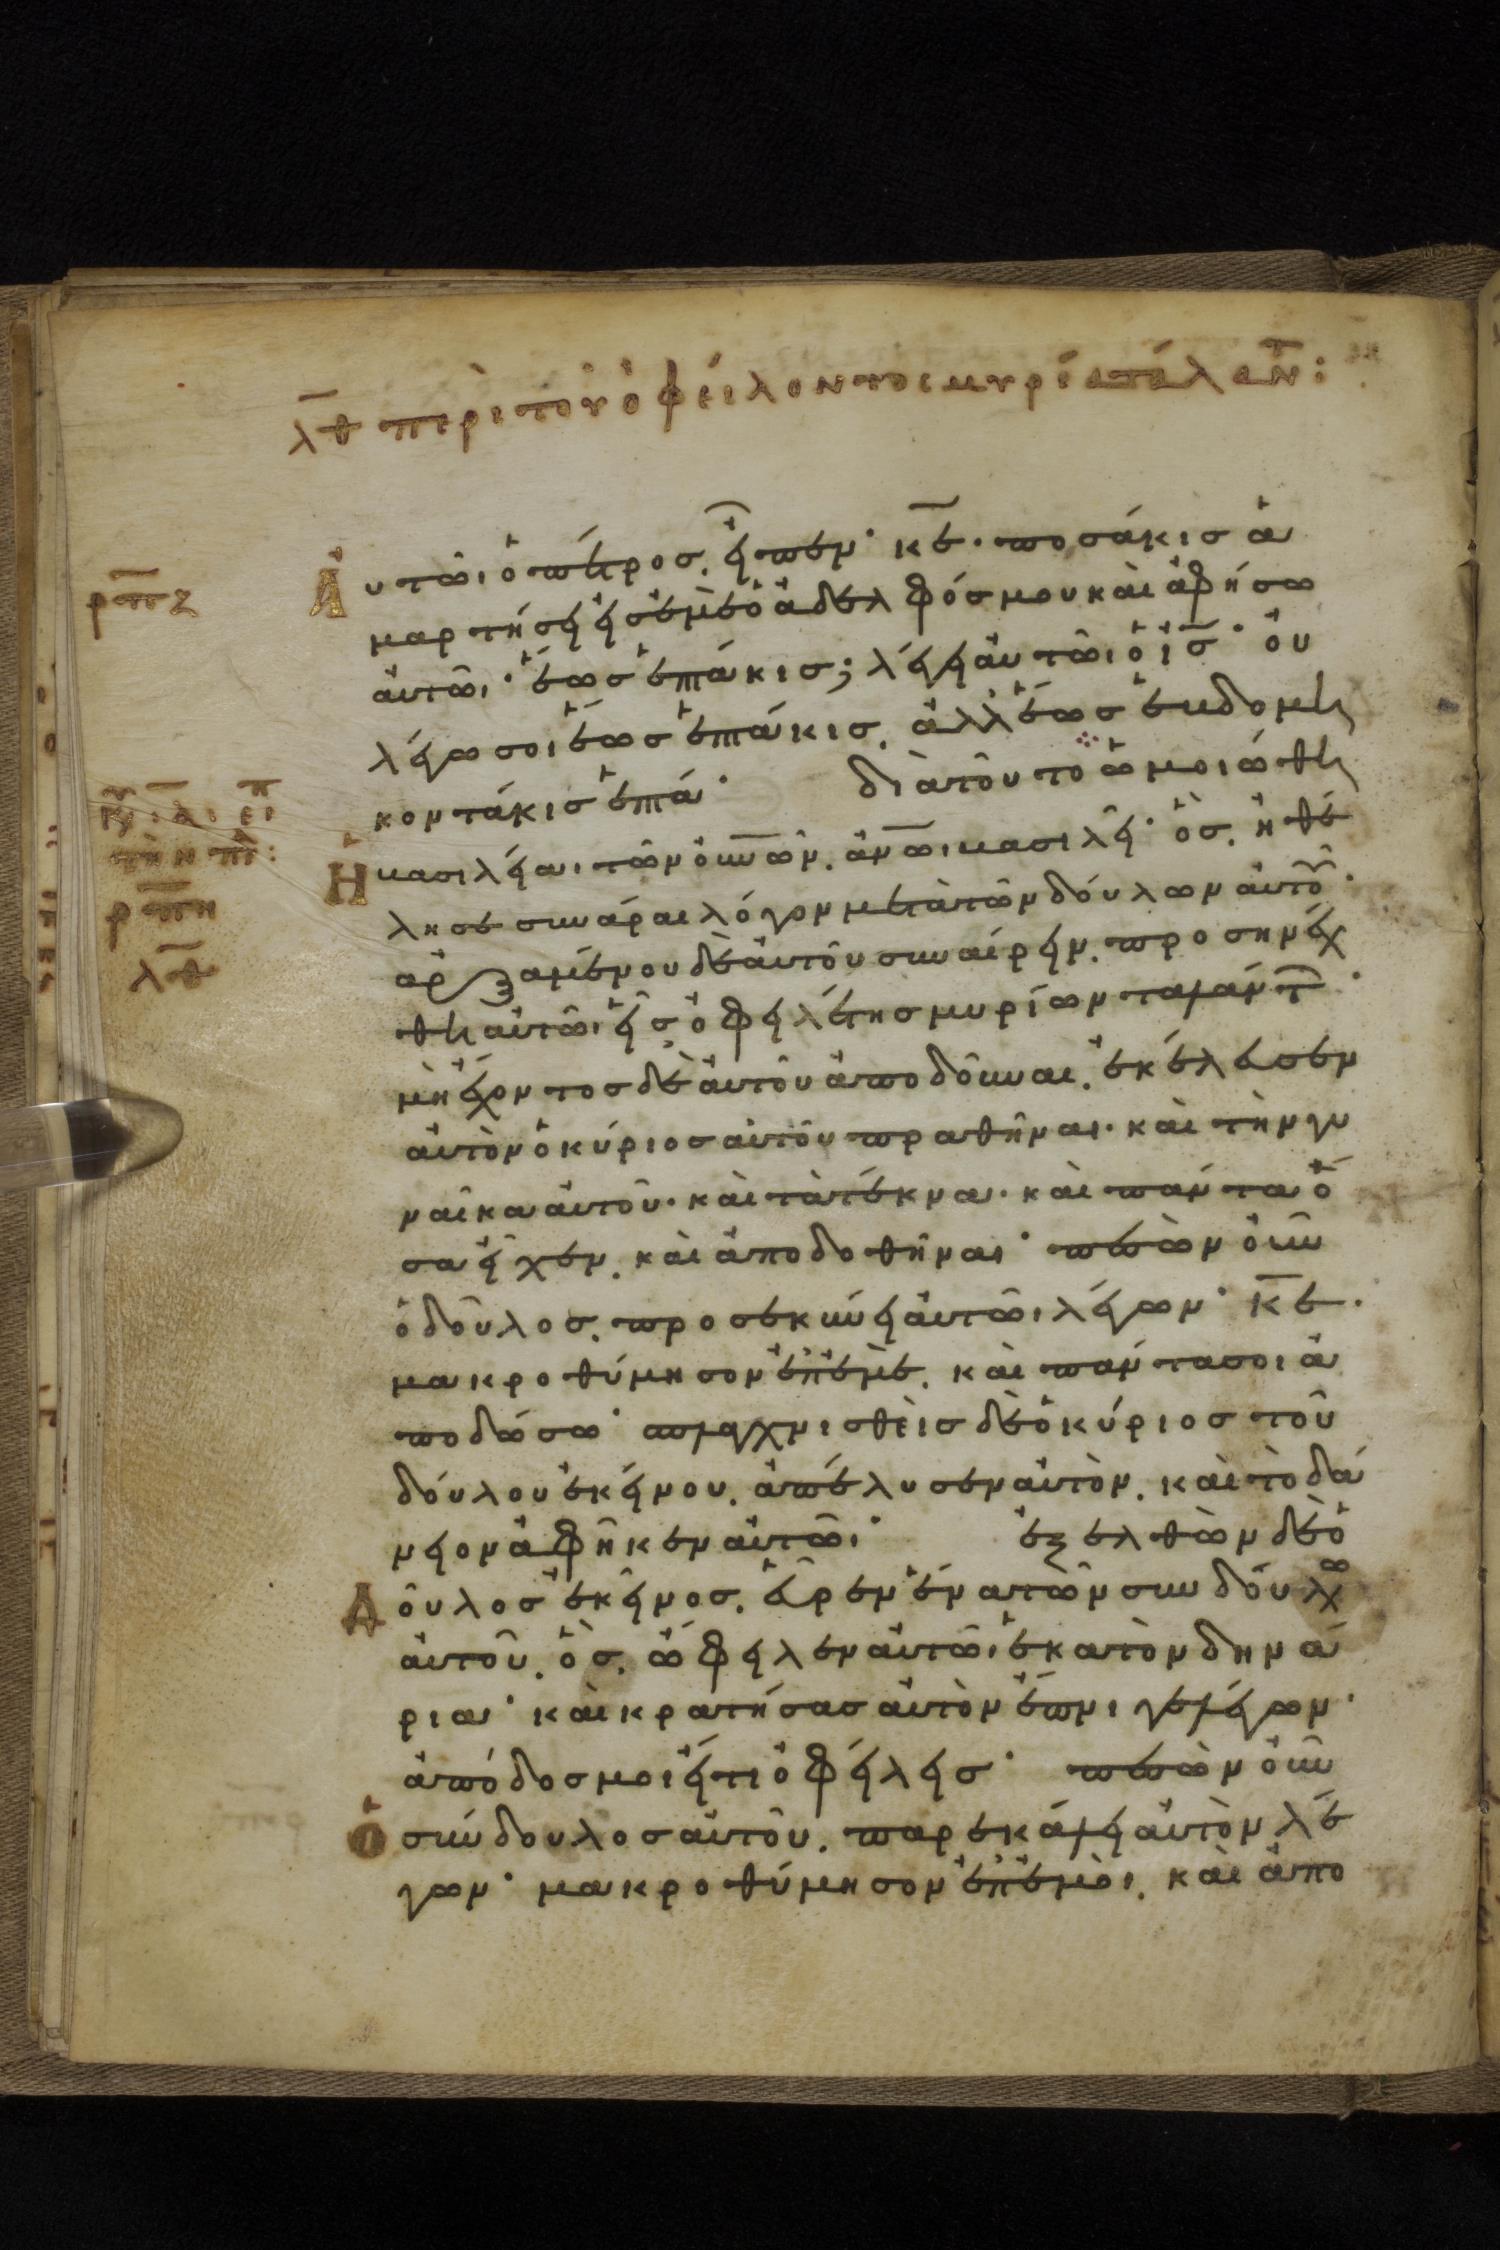 λ̅θ̅ περὶ τοῦ ὀφείλοντος μυρία τάλαν̅τ̅:
Αὐτῶι ὁ πέτρος. εἶπεν· κ̅ε̅· ποσάκις ἁ
ρ̅π̅ζ̅
μαρτήσει εἰς ἐμὲ ὁ ἀδελφός μου καὶ ἀφήσω
αὐτῶι· ἕως ἑπτάκις; λέγει αὐτῶι ὁ ι̅ς̅· οὐ
λέγω σοι ἕως ἑπτάκις. ἀλλ' ἕως ἑβδομη
κοντάκις ἑπτά· διὰ τοῦτο ὡμοιώθη
Ἡ βασιλεία τῶν ο̅υ̅ν̅ῶν. α̅ν̅ω̅ι βασιλεῖ· ὃς. ἠθέ
τὴν π̅ρ̅:
λησε συνάραι λόγον μετὰ τῶν δούλων αὐτοῦ·
ρ̅π̅η̅
ἀρξαμένου δὲ αὐτοῦ συναίρειν. προσηνέχ
λ̅θ̅
θη αὐτῶι εἷς. ὀφειλέτης μυρίων ταλάντ̅·
μὴ ἔχοντος δὲ αὐτοῦ ἀποδοῦναι. ἐκέλευσεν
αὐτὸν ὁ κύριος αὐτοῦ πραθῆναι· καὶ τὴν γυ
ναῖκα αὐτοῦ· καὶ τὰ τέκνα· καὶ πάντα ὅ
σα εἶχεν. καὶ ἀποδοθῆναι· πεσὼν οὖν
ὁ δοῦλος. προσεκύνει αὐτῶι λέγων· κ̅ε̅·
μακροθύμησον ἐπ' ἐμὲ. καὶ πάντα σοι ἀ
ποδώσω· σπλαγχνισθεὶς δὲ ὁ κύριος τοῦ
δούλου ἐκείνου. ἀπέλυσεν αὐτὸν. καὶ τὸ δά
νειον ἀφῆκεν αὐτῶι· ἐξελθὼν δὲ ὁ
Δοῦλος ἐκεῖνος. εὗρεν ἕνα τῶν συνδούλω
αὐτοῦ. ὃς. ὤφειλεν αὐτῶι ἑκατὸν δηνά
ρια· καὶ κρατήσας αὐτὸν ἔπνιγε λέγων·
ἀπόδος μοι εἴ τι ὀφείλεις· πεσὼν οὖν
Ὁ σύνδουλος αὐτοῦ. παρεκάλει αὐτὸν λέ
γων· μακροθύμησον ἐπ' ἐμοὶ. καὶ ἀπο